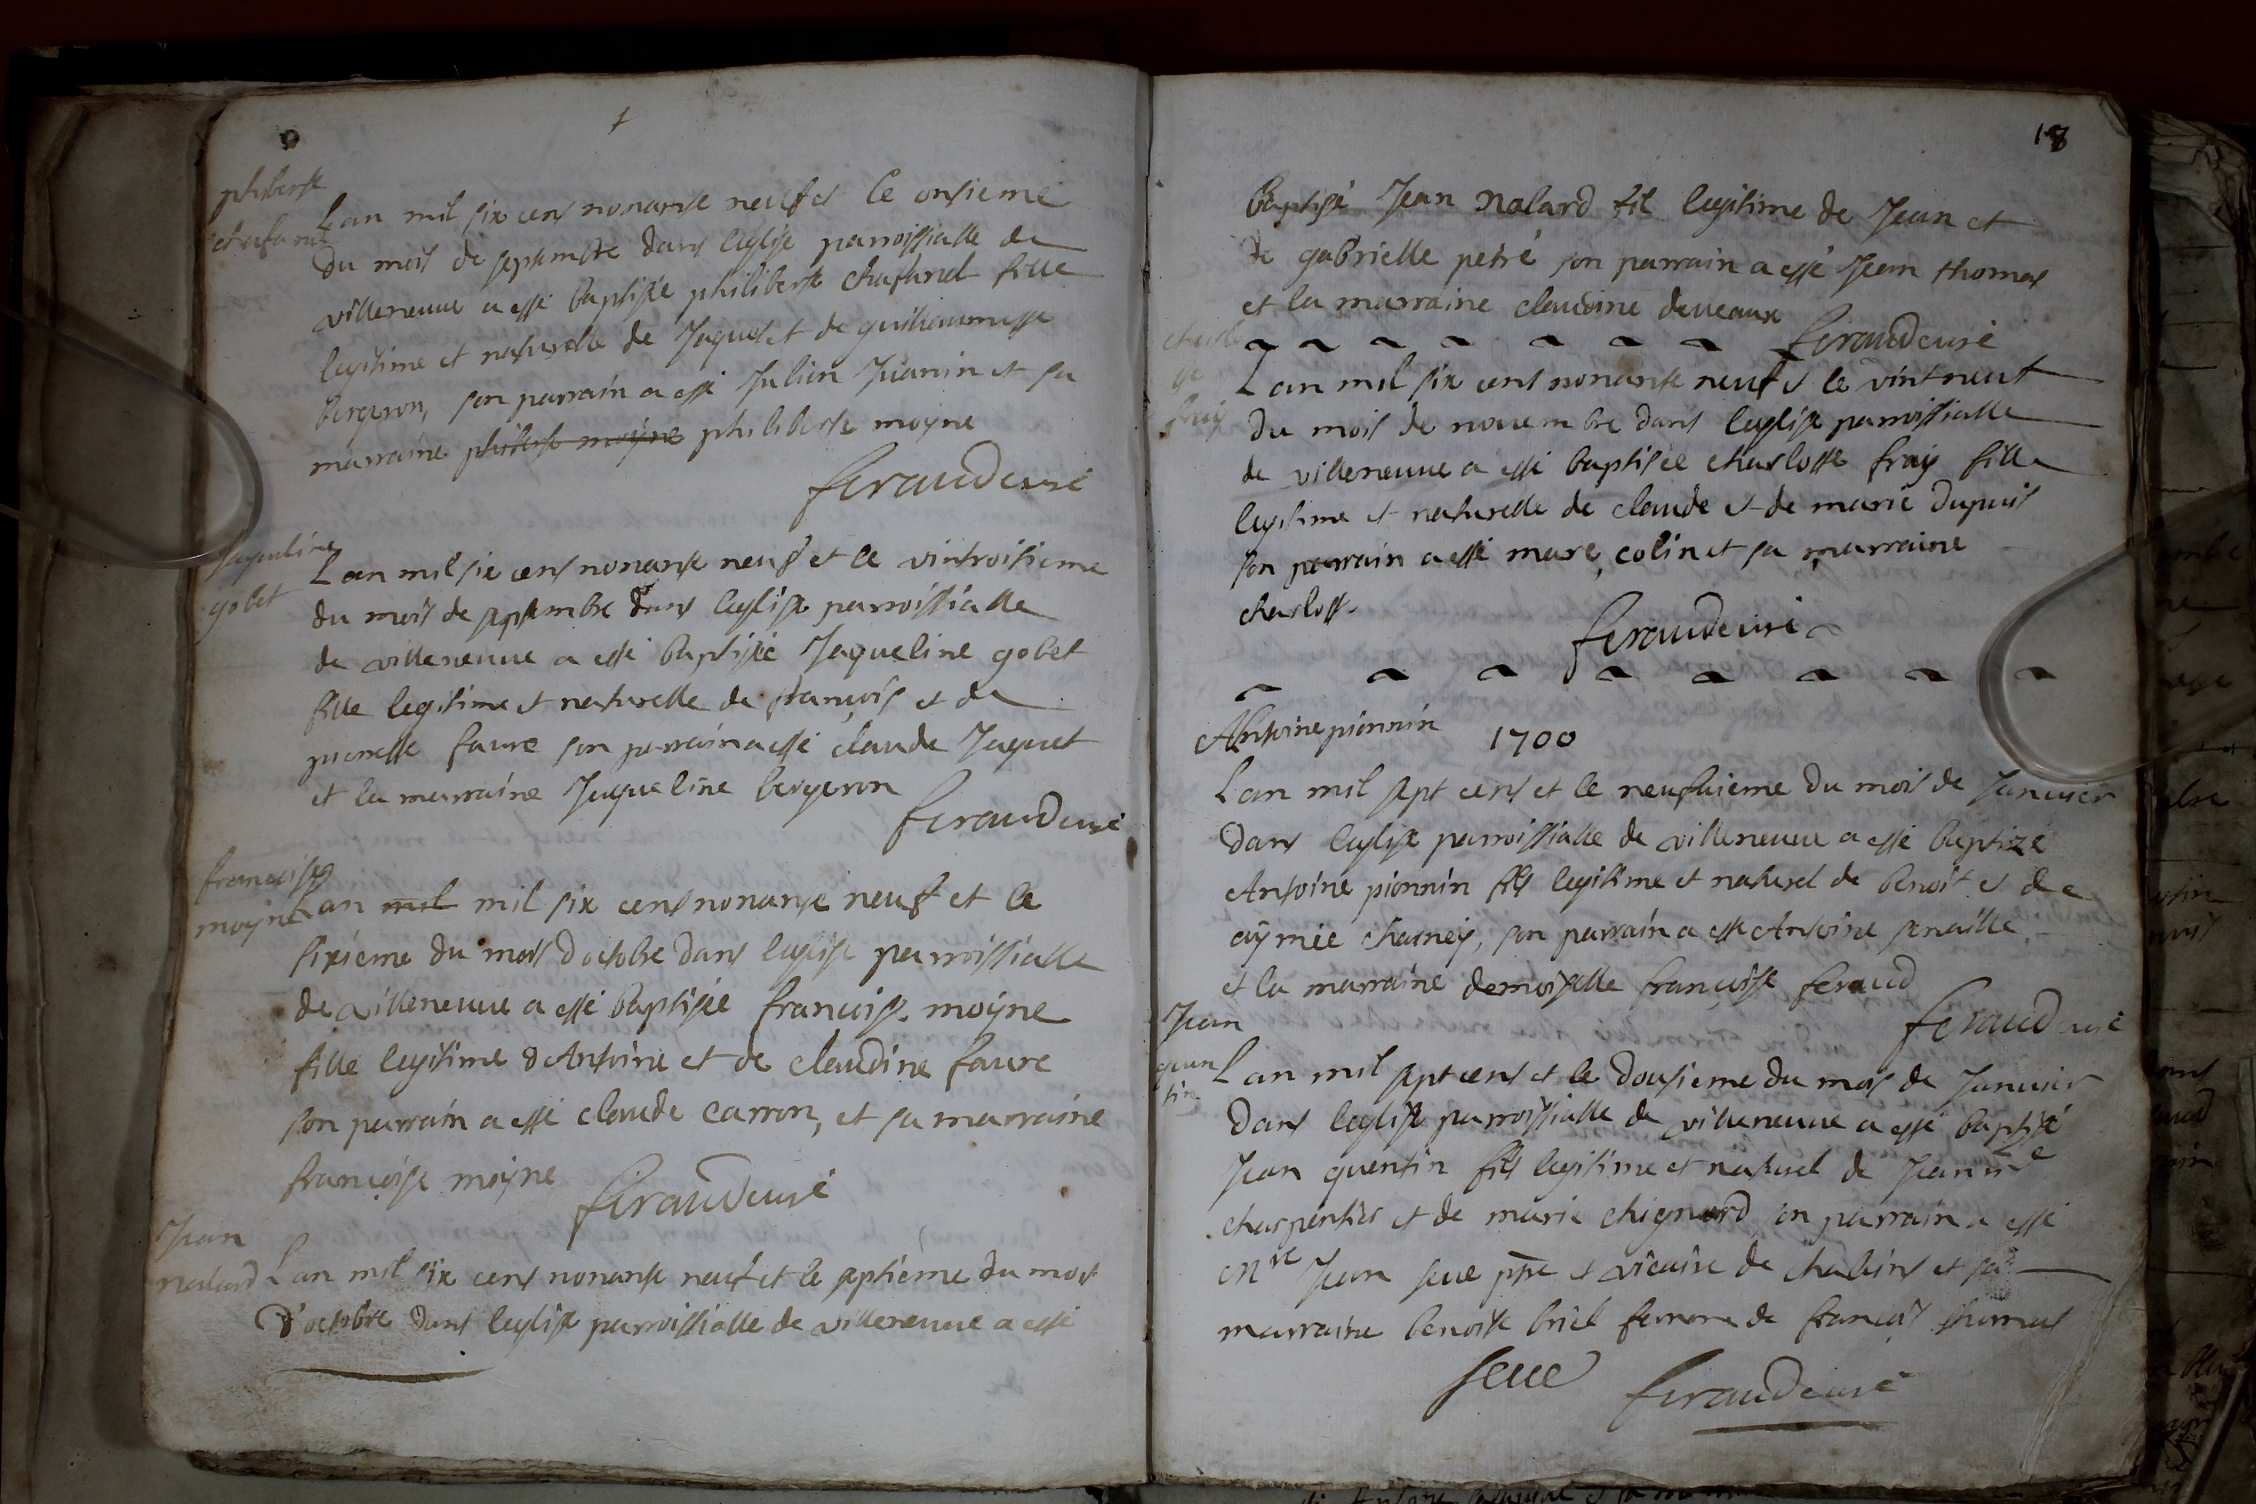 philiberte
chafarud
Lan mil six cens nonante neuf et le onsieme
du mois de septembre dans leglise parroissialle de
villeneuve a esté baptisée philiberte chafarud fille
legitime et naturelle de Jaques et de guillaumette
bergeron, son parrain a esté Julien Jeanin et sa
marraine philiberte moyne philiberte moyne
feraud curé
Jaqueline
gobet
Lan mil six cens nonante neuf et le vintroisieme
du mois de septembre dans leglise parroissialle
de villeneuve a esté baptisée Jaqueline gobet
fille legitime et naturelle de françois et de
pierrette favre son parrain a esté claude Jaquet
et la marraine Jaqueline bergeron
feraud curé
francoise
moyne
Lan mil mil six cens nonante neuf et le
sixieme du mois doctobre dans leglise parroissialle
de villeneuve a esté baptisée francoise moyne
fille legitime d'Antoine et de claudine favre
son parrain a esté claude carron, et sa marraine
françoise moyne
feraud curé
Jean
nalard
Lan mil six cens nonante neuf et le septieme du mois
d'octobre dans leglise parroissialle de villeneuve a esté
18
baptisé Jean nalard fil legitime de Jean et
de gabrielle petré son parrain a esté Jean thomas
et la marraine claudine deveaux
feraud curé
Lan mil six cens nonante neuf et le vintneuf
du mois de novembre dans leglise parroissialle
de villeneuve a esté baptisée charlotte fray fille
legitime et naturelle de claude et de marie dupuis
son parrain a esté marc, colin et sa marraine
charlotte
feraud curé
Antoine pionnin
1700
Lan mil sept cens et le neufvieme du mois de Janvier
dans leglise parroissialle de villeneuve a esté baptizé
Antoine pionnin fils legitime et naturel de benoit et de
aymée charney, son parrain a esté Antoine
et la marraine demoiselle françoise feraud
feraud curé
Jean
quen
tin
Lan mil sept cens et le dousieme du mois de Janvier
dans leglise parroissialle de villeneuve a esté baptisé
Jean quentin fils legitime et naturel de Jean mre
charpentier et de marie chignard son parrain a esté
mre Jean seve ptre et vicaire de chaleins et sa
marraine benoite briel femme de françois thomas
seve feraud curé